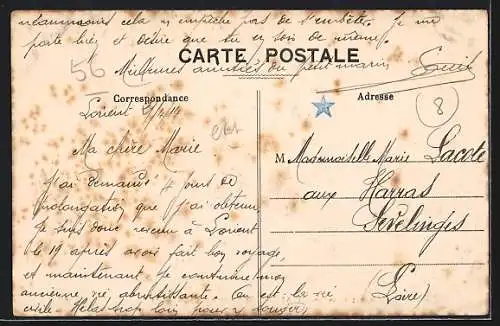 néanmoins cela n'empêche pas de s'embêter. Je me
porte bien et désire que tu en sois de même.
CARTE POSTALE
Meilleures amitiés du petit marin
Louis
56
Correspondance
Adresse
8
Lorient
Ma chère Marie
J'ai demandé 4 jours de
prolongation que j'ai obtenu
Je suis donc revenu à Lorient
le 19 après avoir fait bon voyage
et maintenant je continue mon
ancienne vie abrutissante. Où est la vie
civile. Hélas trop loin pour
M Mademoiselle Marie Lacote
aux Harras
Sevelinges
(Loire)